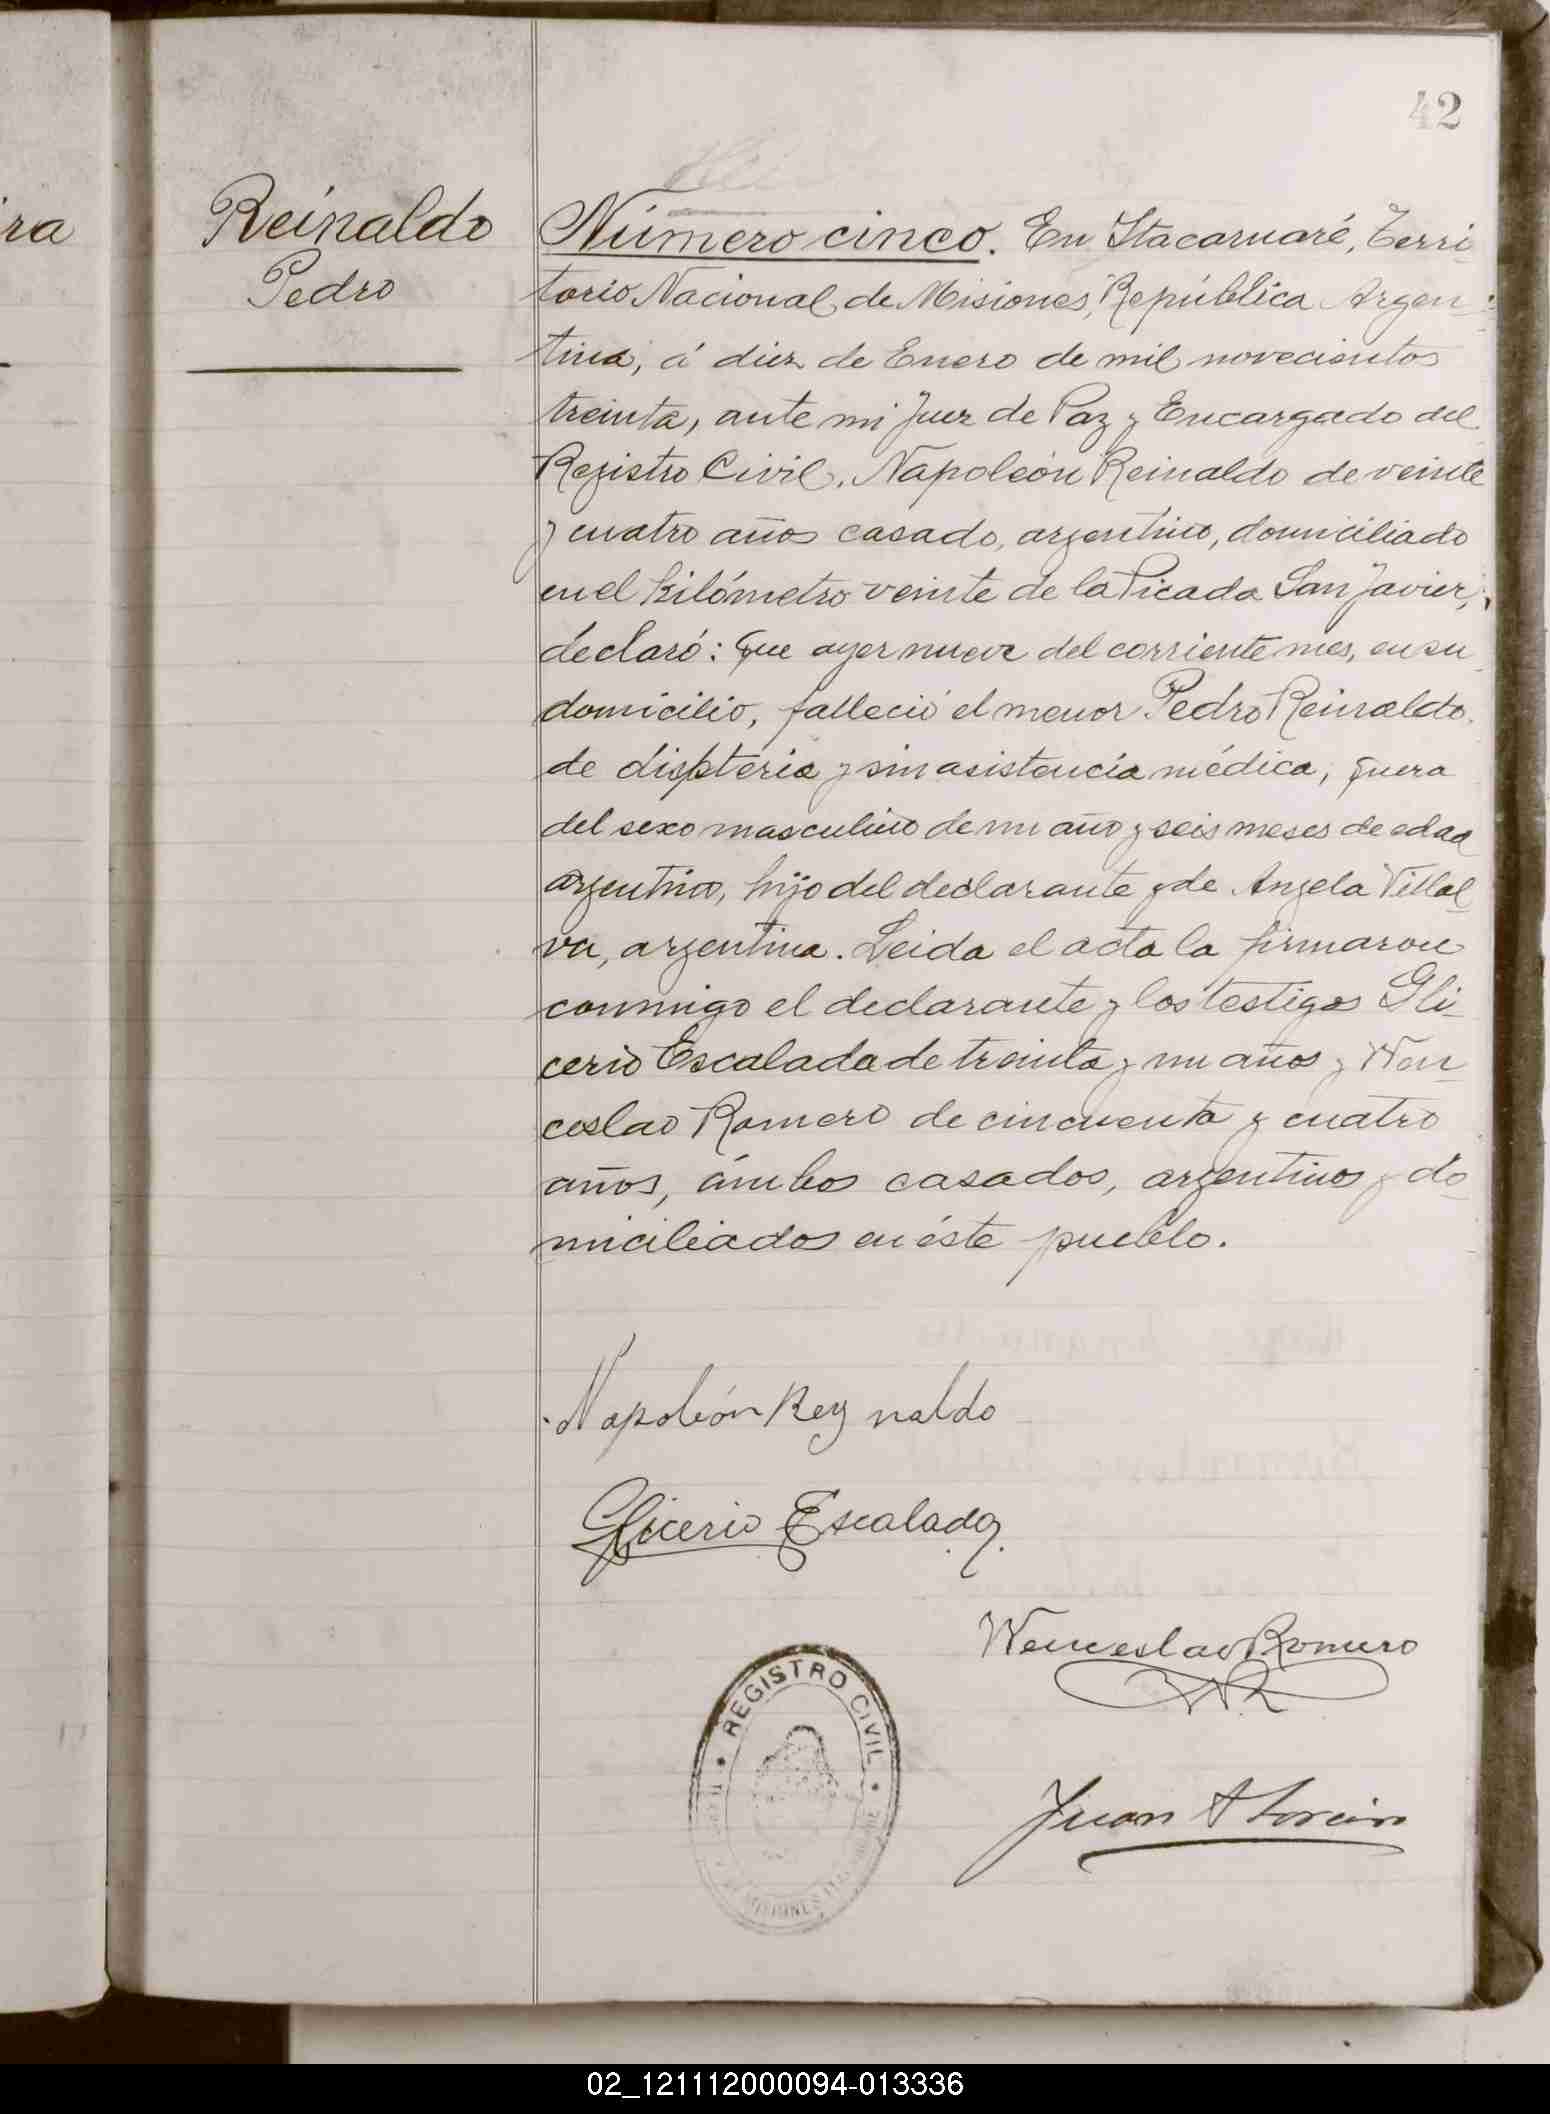 42
ra
Reinaldo
Pedro
Número cinco. En Itacaruaré, Terri-
torio Nacional de Misiones, República Argen-
tina, á diez de Enero de mil novecientos
treinta, ante mi Juez de Paz y Encargado del
Registro Civil, Napoleón Reinaldo de veinte
y cuatro años casado, argentino, domiciliado
en el kilómetro veinte de la Picada San Javier,
declaró: Que ayer nueve del corriente mes, en su
domicilio, falleció el menor Pedro Reinaldo
de dispteria y sin asistencia médica, que era
del sexo masculino de un año y seis meses de edad
argentino, hijo del declarante y de Angela Villal-
va, argentina. Leida el acta la firmaron
conmigo el declarante y los testigos Gli-
cerio Escalada de treinta y un años y Wen-
ceslao Romero de cincuenta y cuatro
años, ámbos casados, argentinos y do-
miciliados en éste pueblo.
Napoleón Reynaldo
Glicerio Escalada
Wenceslao Romero
WR
Juan A
REGISTRO CIVIL
MISIONES
02_121112000094-013336